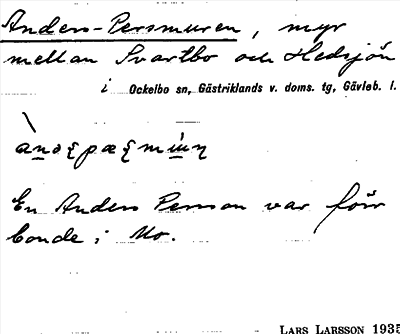 Anders-Persmuren, myr
mellan Svartbo och Hedsjön
i Ockelbo sn, Gästriklands v. doms. tg, Gävleb. l.
En Anders Persson var förr
bonde i Mo.
LARS LARSSON 1935